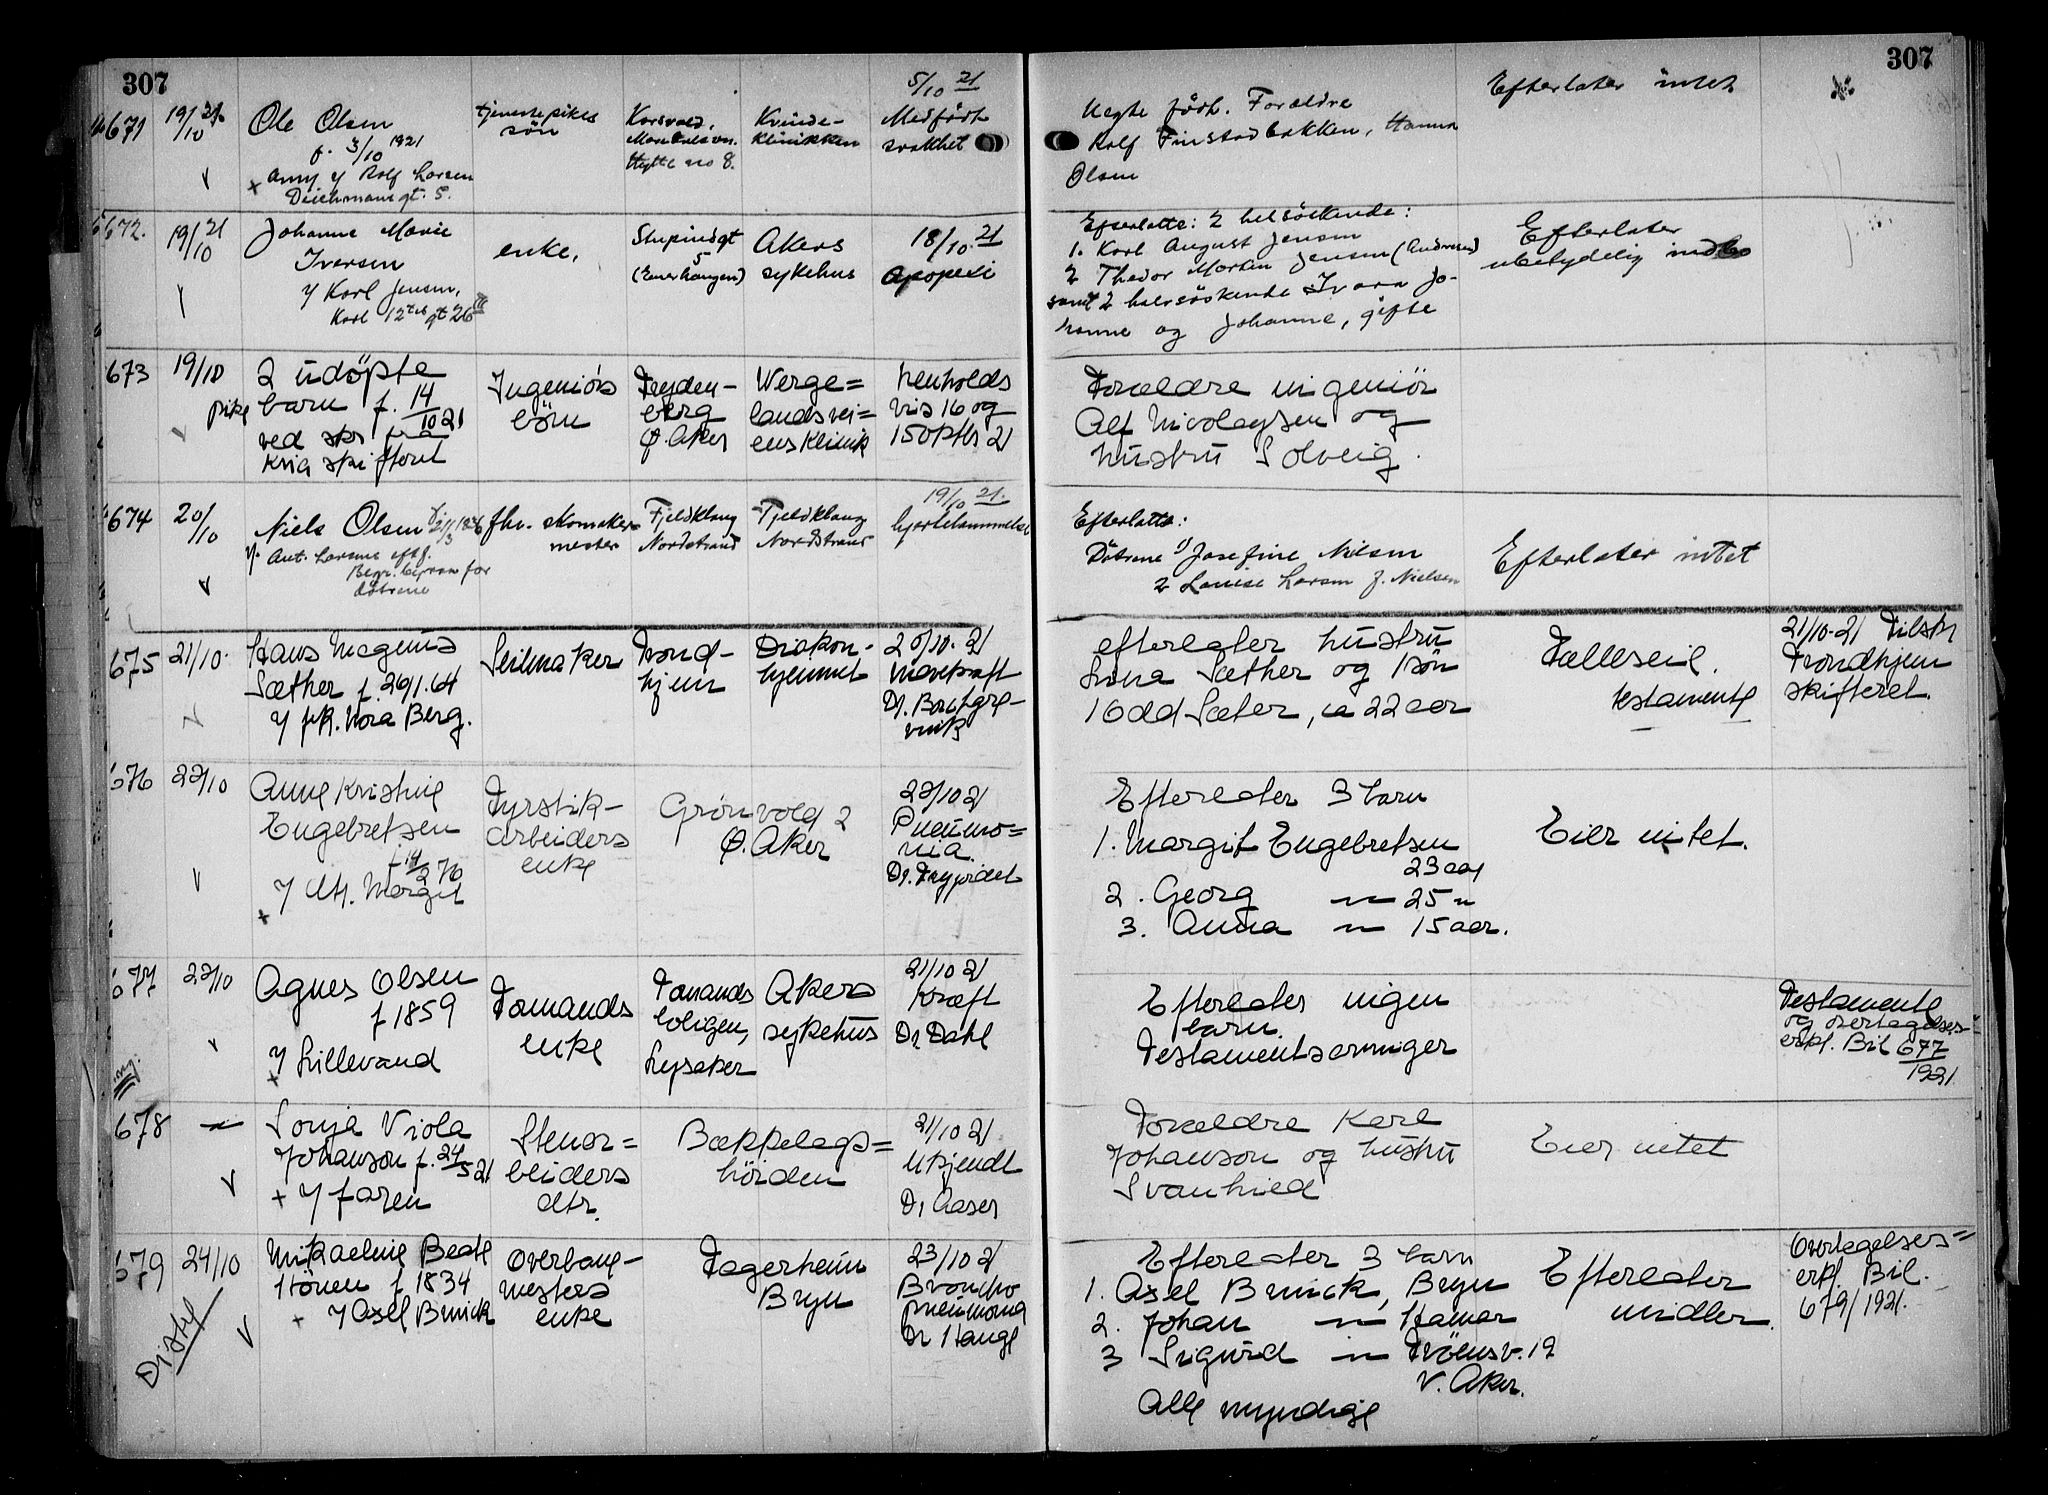 307
307
671
19/10 21
Ole Olsen
f. 3/10 1921
Anm y Rolf Larsen
Deichmans gt. 5.
tjenestepikes
søn
Korsvold,
Hytte no 8.
Kvinde-
klinikken
5/10 21
Medfødt
svakhet
Uegte født. Forældre
Rolf Finstadbakken, Hanna
Olsen
Efterlater intet
672.
19/10 21
Johanne Marie
Iversen
y Karl Jensen,
Karl 12tes gt 26 III
enke,
Stupindgt
5
(Enerhaugen)
Akers
sykehus
18/10. 21
Apopexi
Efterlatte: 2 helsöskende:
1. Karl August Jensen
2 Thedor Morten Jensen (Andresen)
samt 2 halvsöskende Ivara Jo-
hanne og Johanne, gifte
Efterlater
ubetydelig indbo
673
19/10
pike
2 udöpte
barn f. 14/10 21
ved skr fra
Kria skifteret
Ingeniørs
börn
Heyden-
berg
Ø. Aker
Werge=
landsvei=
ens Klinik
henholds
vis 16 og
15 oktbr 21
Forældre ingeniör
Alf Nicolaysen og
hustru Solveig.
674
20/10
Niels Olsen f. 21/3 1826
y. Ant. Larsens eftf.
Begr. byraa for
døtrene
fhv. skomaker-
mester
Fjeldklang
Nordstrand
Fjeldklang
Nordstrand
19/10 21.
hjertelammelse
Efterlatte:
Døtrene 1) Josefine Nilsen
2 Louise Larsen f. Nielsen
Efterlater intet
675
21/10.
Hans Magnus
Sæther f 26/1. 64
y frk. Nora Berg.
Seilmaker
Trond-
hjem
Diakon-
hjemmet
20/10. 21
Mavekræft
Dr. Borchgre-
vink
efterlater hustru
Lina Sæther og 1 sön
1 Odd Sæter, ca 22 aar
Fælleseie.
testamente
21/10-21 Tilskr
Trondhjem
skifteret.
676
22/10
Anne Kristine
Engebretsen
f 14/2 76
y dtr. Margit
Fyrstik-
arbeiders
enke
Grönvold 2
Ø. Aker
22/10 21
Pneumo=
nia.
Efterlater 3 barn
1. Margit Engebretsen
23 aar
2. Georg — " — 25 "
3. Anna — " — 15 aar.
Eier intet.
677
22/10
Agnes Olsen
f 1859
y Lillevand
Formands
enke
Formands
boligen,
Lysaker
Akers
sykehus
21/10 21
Kræft
Dr. Dahl
Efterlater ingen
barn.
Testamentsarvinger
Testamente
og overtagelses-
erkl. Bil 677/1921
678
— " —
Sonja Viola
Johanson f. 24/5 21
+ y faren
Stenar=
beiders
dtr.
Bækkelags=
höiden
21/10 21
Ukjendt
Dr Aaser
Forældre Karl
Johanson og hustru
Svanhild
Eier intet
679
24/10
Mikaeline Beate
Hönen f 1834
+ y Axel Brinck
Overbane-
mesters
enke
Fagerheim
Bryn
23/10 21
Broncho
pneumona
Dr Hauge
Efterlater 3 barn
1. Axel Brinck, Bryn
2. Johan — " — Hamar
3 Sigurd — " — Trösensv. 12
V. Aker.
Alle myndige
Efterlater
midler.
Overtagelses=
erkl. Bil.
679/1921.